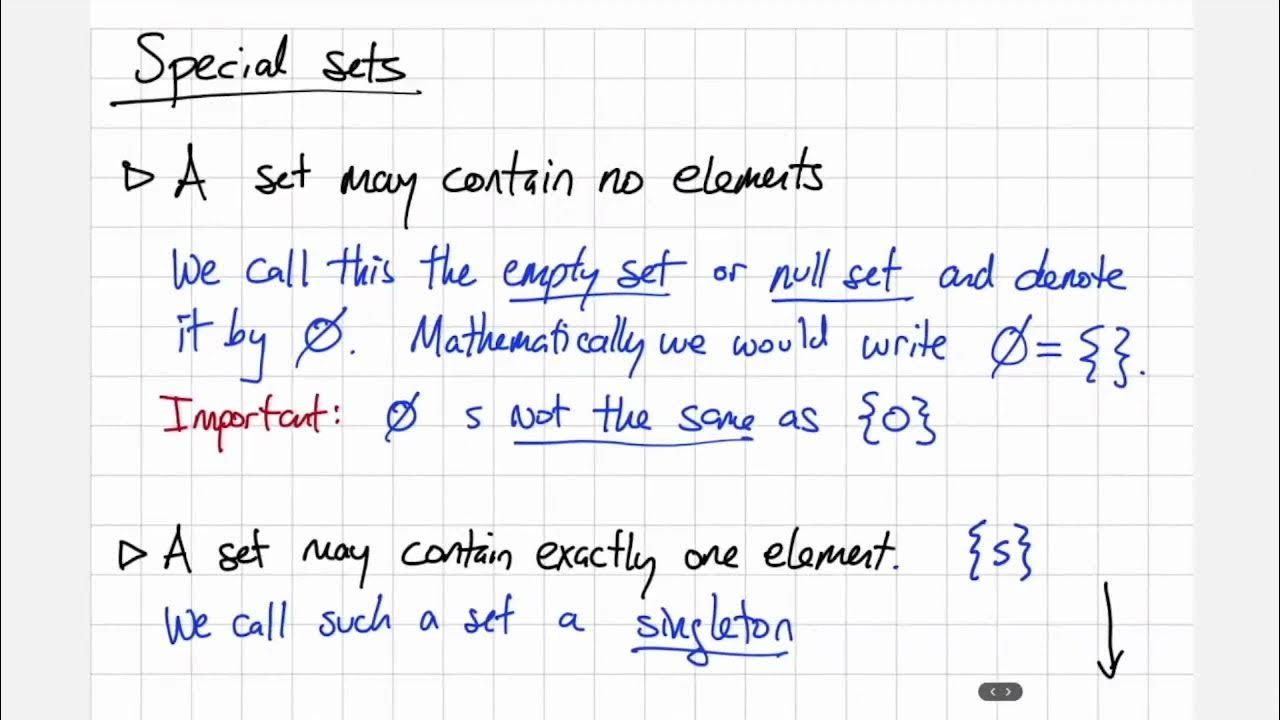 Special sets
▷ A set may contain no elements
We call this the empty set or null set and denote
it by ∅. Mathematically we would write ∅ = { }.
Important: ∅ s not the same as {0}
▷ A set may contain exactly one element. {s}
We call such a set a singleton